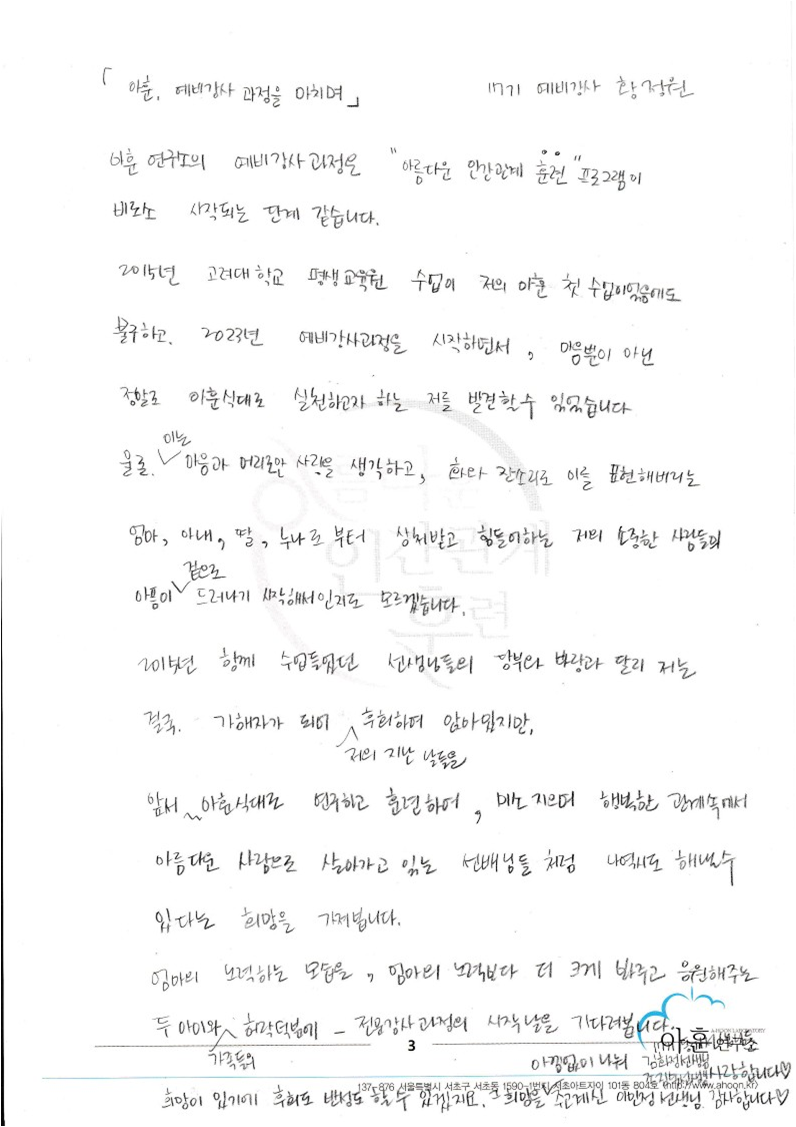 「아훈, 예비강사 과정을 마치며」 17기 예비강사 황정원
아훈 연구소의 예비강사과정은 "아름다운 인간관계 훈련" 프로그램이
비로소 시작되는 단계 같습니다.
2015년 고려대학교 평생교육원 수업이 저의 아훈 첫 수업이었음에도
불구하고. 2023년 예비강사과정을 시작하면서, 마음뿐이 아닌
정말로 아훈식대로 실천하고자 하는 저를 발견할수 있었습니다
물론. 이는 마음과 머리로만 사랑을 생각하고, 화와 잔소리로 이를 표현해버리는
엄마, 아내, 딸, 누나로 부터 상처받고 힘들어하는 저의 소중한 사람들의
아픔이 겉으로 드러나기 시작해서인지도 모르겠습니다.
2015년 함께 수업들었던 선생님들의 당부와 바램과 달리 저는
결국. 가해자가 되어 저의 지난 날들을 후회하며 앉아있지만,
앞서 아훈식대로 연구하고 훈련하여, 미소 지으며 행복한 관계속에서
아름다운 사람으로 살아가고 있는 선배님들 처럼 나역시도 해낼수
있다는 희망을 가져봅니다.
엄마의 노력하는 모습을, 엄마의 노력보다 더 크게 봐주고 응원해주는
두 아이와 가족들의 허락덕분에 - 전용강사과정의 시작날을 기다려봅니다.
희망이 있기에 후회도 반성도 할 수 있겠지요. 그 희망을 아낌없이 나눠 주고계신 이민정 선생님 감사합니다♡
김희정선생님
사랑합니다♡
아름다운
인간관계
훈련
3
아훈 연구소
A-HOON LABORATORY
137-876 서울특별시 서초구 서초동 1590-1번지 서초아트자이 101동 804호 (http://www.ahoon.kr)